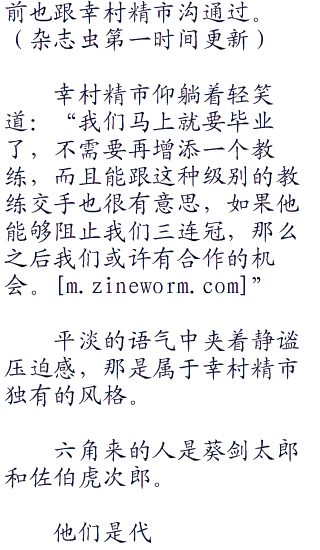 前也跟幸村精市沟通过。
（杂志虫第一时间更新）
幸村精市仰躺着轻笑
道：“我们马上就要毕业
了，不需要再增添一个教
练，而且能跟这种级别的教
练交手也很有意思，如果他
能够阻止我们三连冠，那么
之后我们或许有合作的机
会。[m.zineworm.com]”
平淡的语气中夹着静谧
压迫感，那是属于幸村精市
独有的风格。
六角来的人是葵剑太郎
和佐伯虎次郎。
他们是代